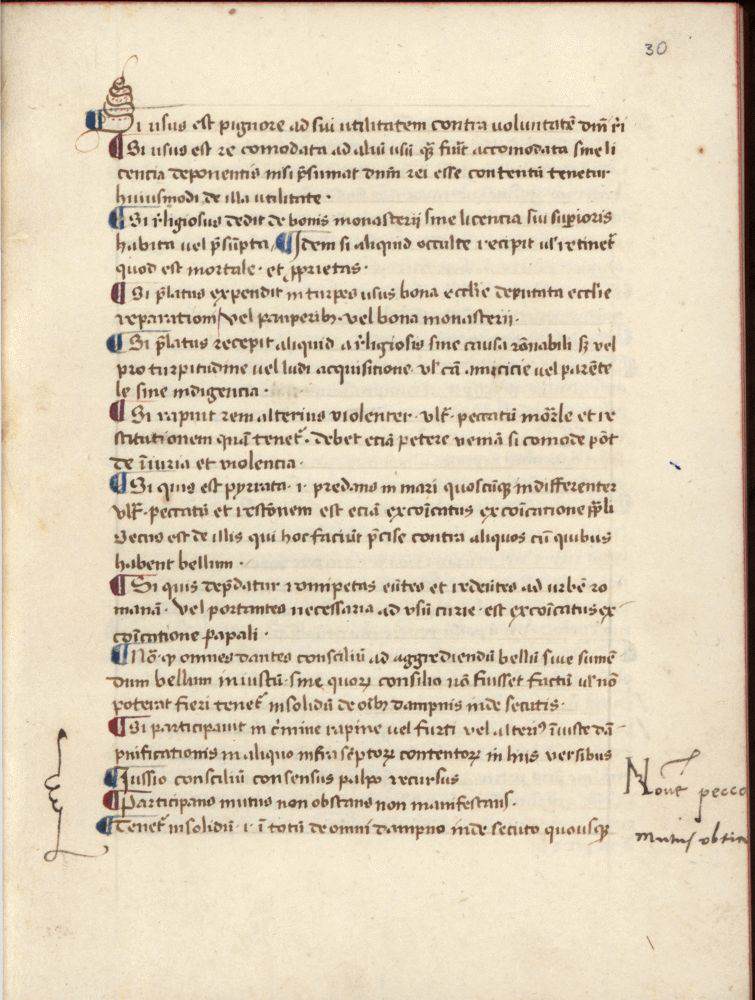 30
¶ Si usus est pignore ad sui utilitatem contra voluntatē dn̄i r̄i
¶ Si usus est re comodata ad aliū usū q̄ fuīt accomodata sine li
cencia deponentis nisi p̄sumat dn̄m rei esse contentū tenetur
huiusmodi de illa utilitate ·
¶ Si r̄ligiosus dedit de bonis monasterij sine licencia sui sup̄ioris
habita vel p̄sūpta / ¶ Idem si aliquid occulte recipit ul̓ retinet̓
quod est mortale · et p̱prietas ·
¶ Si p̄latus expendit in turpes usus bona eccl̄ie deputata eccl̄ie
reparationi / vel pauperibꝫ · vel bona monasterij ·
¶ Si p̄latus recepit aliquid a r̄ligiosis sine causa rōnabili sꝫ vel
pro turpitudine vel ludi acquisitione ul̓ cā amicicie vel parēte
le sine indigencia ·
¶ Si rapuit rem alterius violenter · ult̓ · peccatū mōr̄le et re
stitutionem quā tenet̓ · debet eciā petere veniā si comode pōt
de īiuria et violencia ·
¶ Si quis est pyrrata · i · predans in mari quoscūqꝫ indifferenter
ult̓ · peccatū et rest̄onem est eciā excōicatus excōicatione p̄p̄li
Secus est de illis qui hoc faciūt p̄cise contra aliquos cū quibus
habent bellum ·
¶ Si quis dep̄datur romipetas eūtes et redeūtes ad urbē ro
manā · vel portantes necessaria ad usū curie · est excōicatus ex
cōicatione papali ·
¶ Nō · ꝙ omnes dantes consciliū ad aggrediendū bellū sive sumē
dum bellum iniustū · sine quorꝫ consilio nō fuisset factū ul̓ nō
poterat fieri tenet̓ insolidū de oībꝫ dampnis inde secutis ·
¶ Si participauit in c̓mine rapine vel furti vel alteriꝰ īiuste dā
pnificationis in aliquo infra sc̄ptorꝫ contentorꝫ in hijs versibus
¶ Iussio consciliū consensus palpo recursus
¶ Participans mutus non obstans non manifestans ·
¶ Tenet̓ insolidū · i · ī totū de omni dampno inde secuto quousqꝫ
mutus